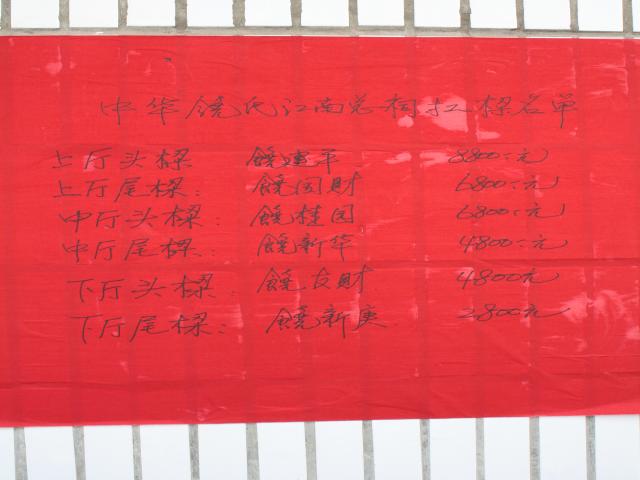 中华饶氏江南总祠扛樑名单
上厅头樑 饶建平 8800:元
上厅尾樑: 饶国财 6800:元
中厅头樑: 饶桂园 6800:元
中厅尾樑: 饶新华 4800:元
下厅头樑: 饶友财 4800元
下厅尾樑: 饶新庚 2800元